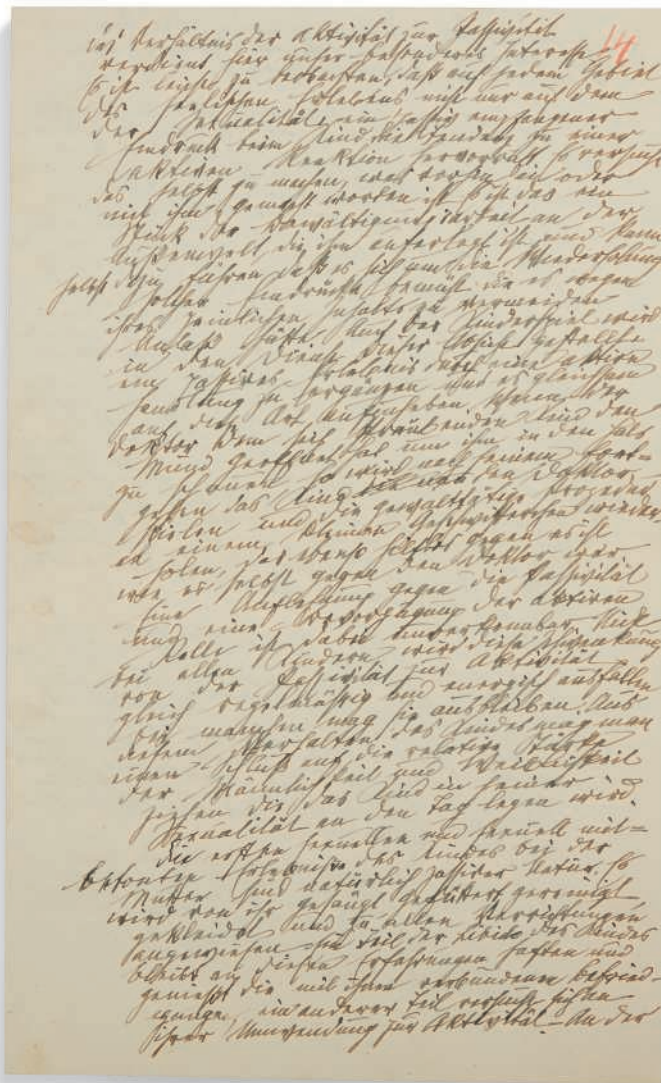 14
das Verhältnis der Aktivität zur Passivität
verdient hier unser besonderes Interesse.
Es ist leicht zu beobachten, daß auf jedem Gebiet
des seelischen Erlebens nicht nur auf dem
der Sexualität ein passiv empfangener
Eindruck beim Kind die Tendenz zu einer
aktiven Reaktion hervorruft. Es versucht
das selbst zu machen, was vorhin an oder
mit ihm gemacht worden ist. Es ist das ein
Stück der Bewältigungsarbeit an der
Außenwelt, die ihm auferlegt ist und kann
selbst dazu führen daß es sich um die Wiederholung
solcher Eindrücke bemüht die es wegen
ihres peinlichen Inhalts zu vermeiden
Anlaß hätte. Auch das Kinderspiel wird
in den Dienst dieser Absicht gestellt
ein passives Erlebnis durch eine aktive
Handlung zu ergänzen und es gleichsam
auf diese Art aufzuheben. Wenn der
Doktor dem sich sträubenden Kind den
Mund geöffnet hat um ihm in den Hals
zu schauen so wird nach seinem Fort=
gehen das Kind den Doktor
spielen und die gewalttätige Prozedur
an einem kleinen Geschwisterchen wieder=
holen, das ebenso hilflos gegen es ist
wie es selbst gegen den Doktor war
Eine Auflehnung gegen die Passivität
und eine Bevorzugung der aktiven
Rolle ist dabei unverkennbar. Nicht
bei allen Kindern wird diese Schwenkung
von der Passivität zur Aktivität
gleich regelmäßig und energisch ausfallen
bei manchen mag sie ausbleiben. Aus
diesem Verhalten des Kindes mag man
einen Schluß auf die relative Stärke
der Männlichkeit und Weiblichkeit
ziehen die das Kind in seiner
Sexualität an den Tag legen wird.
Die ersten sexuellen und sexuell mit=
betonten Erlebnisse des Kindes bei der
Mutter sind natürlich passiver Natur. Es
wird von ihr gesäugt gefüttert gereinigt
gekleidet und zu allen Verrichtungen
angewiesen. Ein Teil der Libido des Kindes
bleibt an diesen Erfahrungen haften und
genießt die mit ihnen verbundenen Befried=
igungen, ein anderer Teil versucht sich an
ihrer Umwendung zur Aktivität. An der